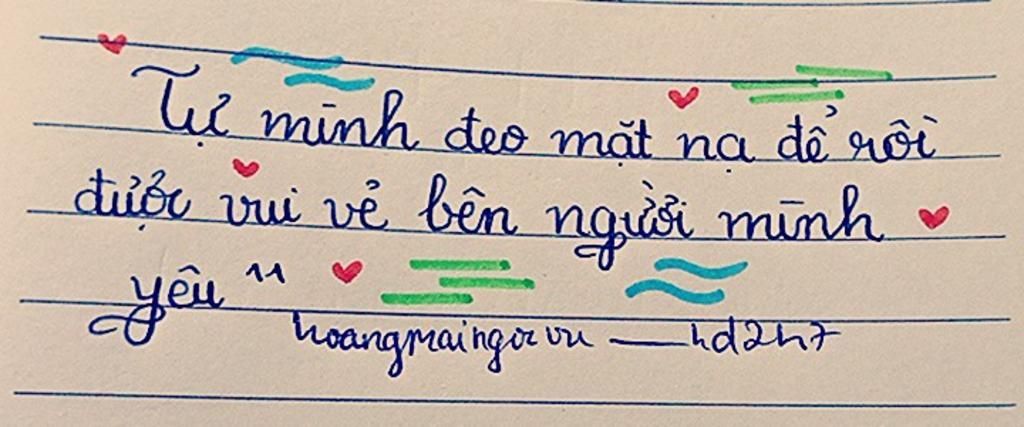 Tự mình đeo mặt nạ để rồi
được vui vẻ bên người mình
yêu ^^
hoangmaingocvu — hd2h7